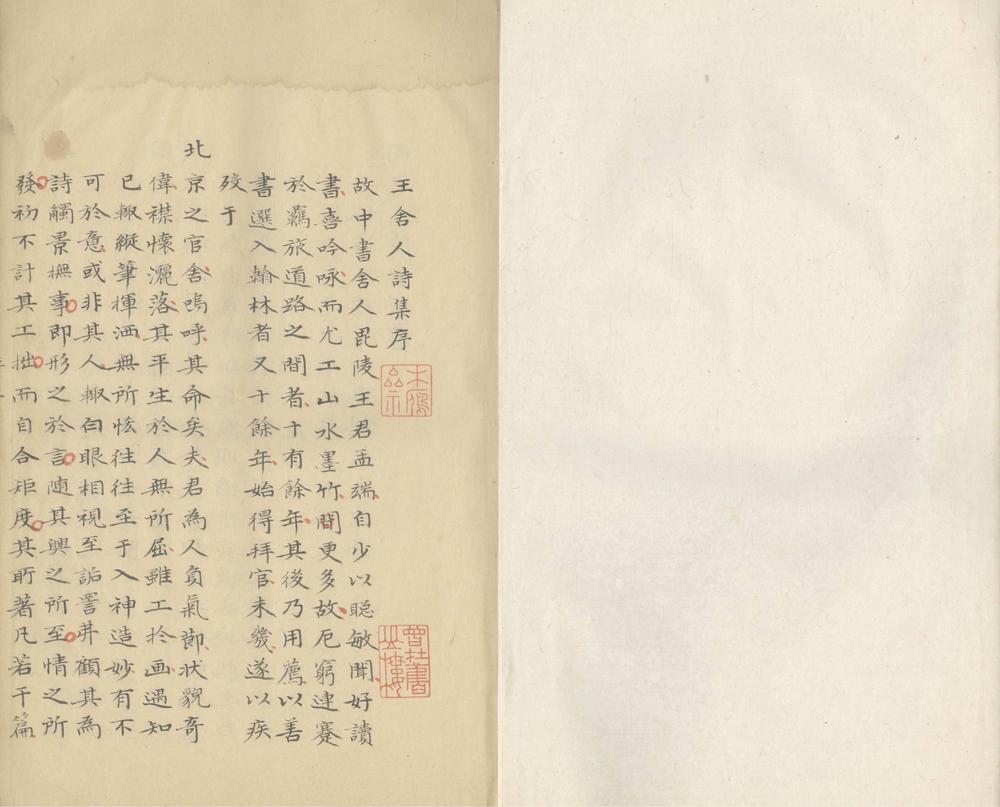 王舍人詩集序
故中書舍人毘陵王君孟端自少以聪敏聞好讀
書喜吟咏而尤工山水墨竹間更多故厄窮連蹇
於羈旅道路之間者十有餘年其後乃用薦以善
書選入翰林者又十餘年始得拜官未幾遂以疾
歿于
北京之官舍嗚呼其命矣夫君為人負氣節状貎奇
偉襟懷灑落其平生於人無所屈雖工扵画遇知
已輙縱筆揮洒無所恡往往至于入神造妙有不
可於意或非其人輙白眼相視至詬詈井顧其為
詩觸景撫事即形之於言随其興之所至情之所
發初不計其工拙而自合矩度其所著凡若干篇